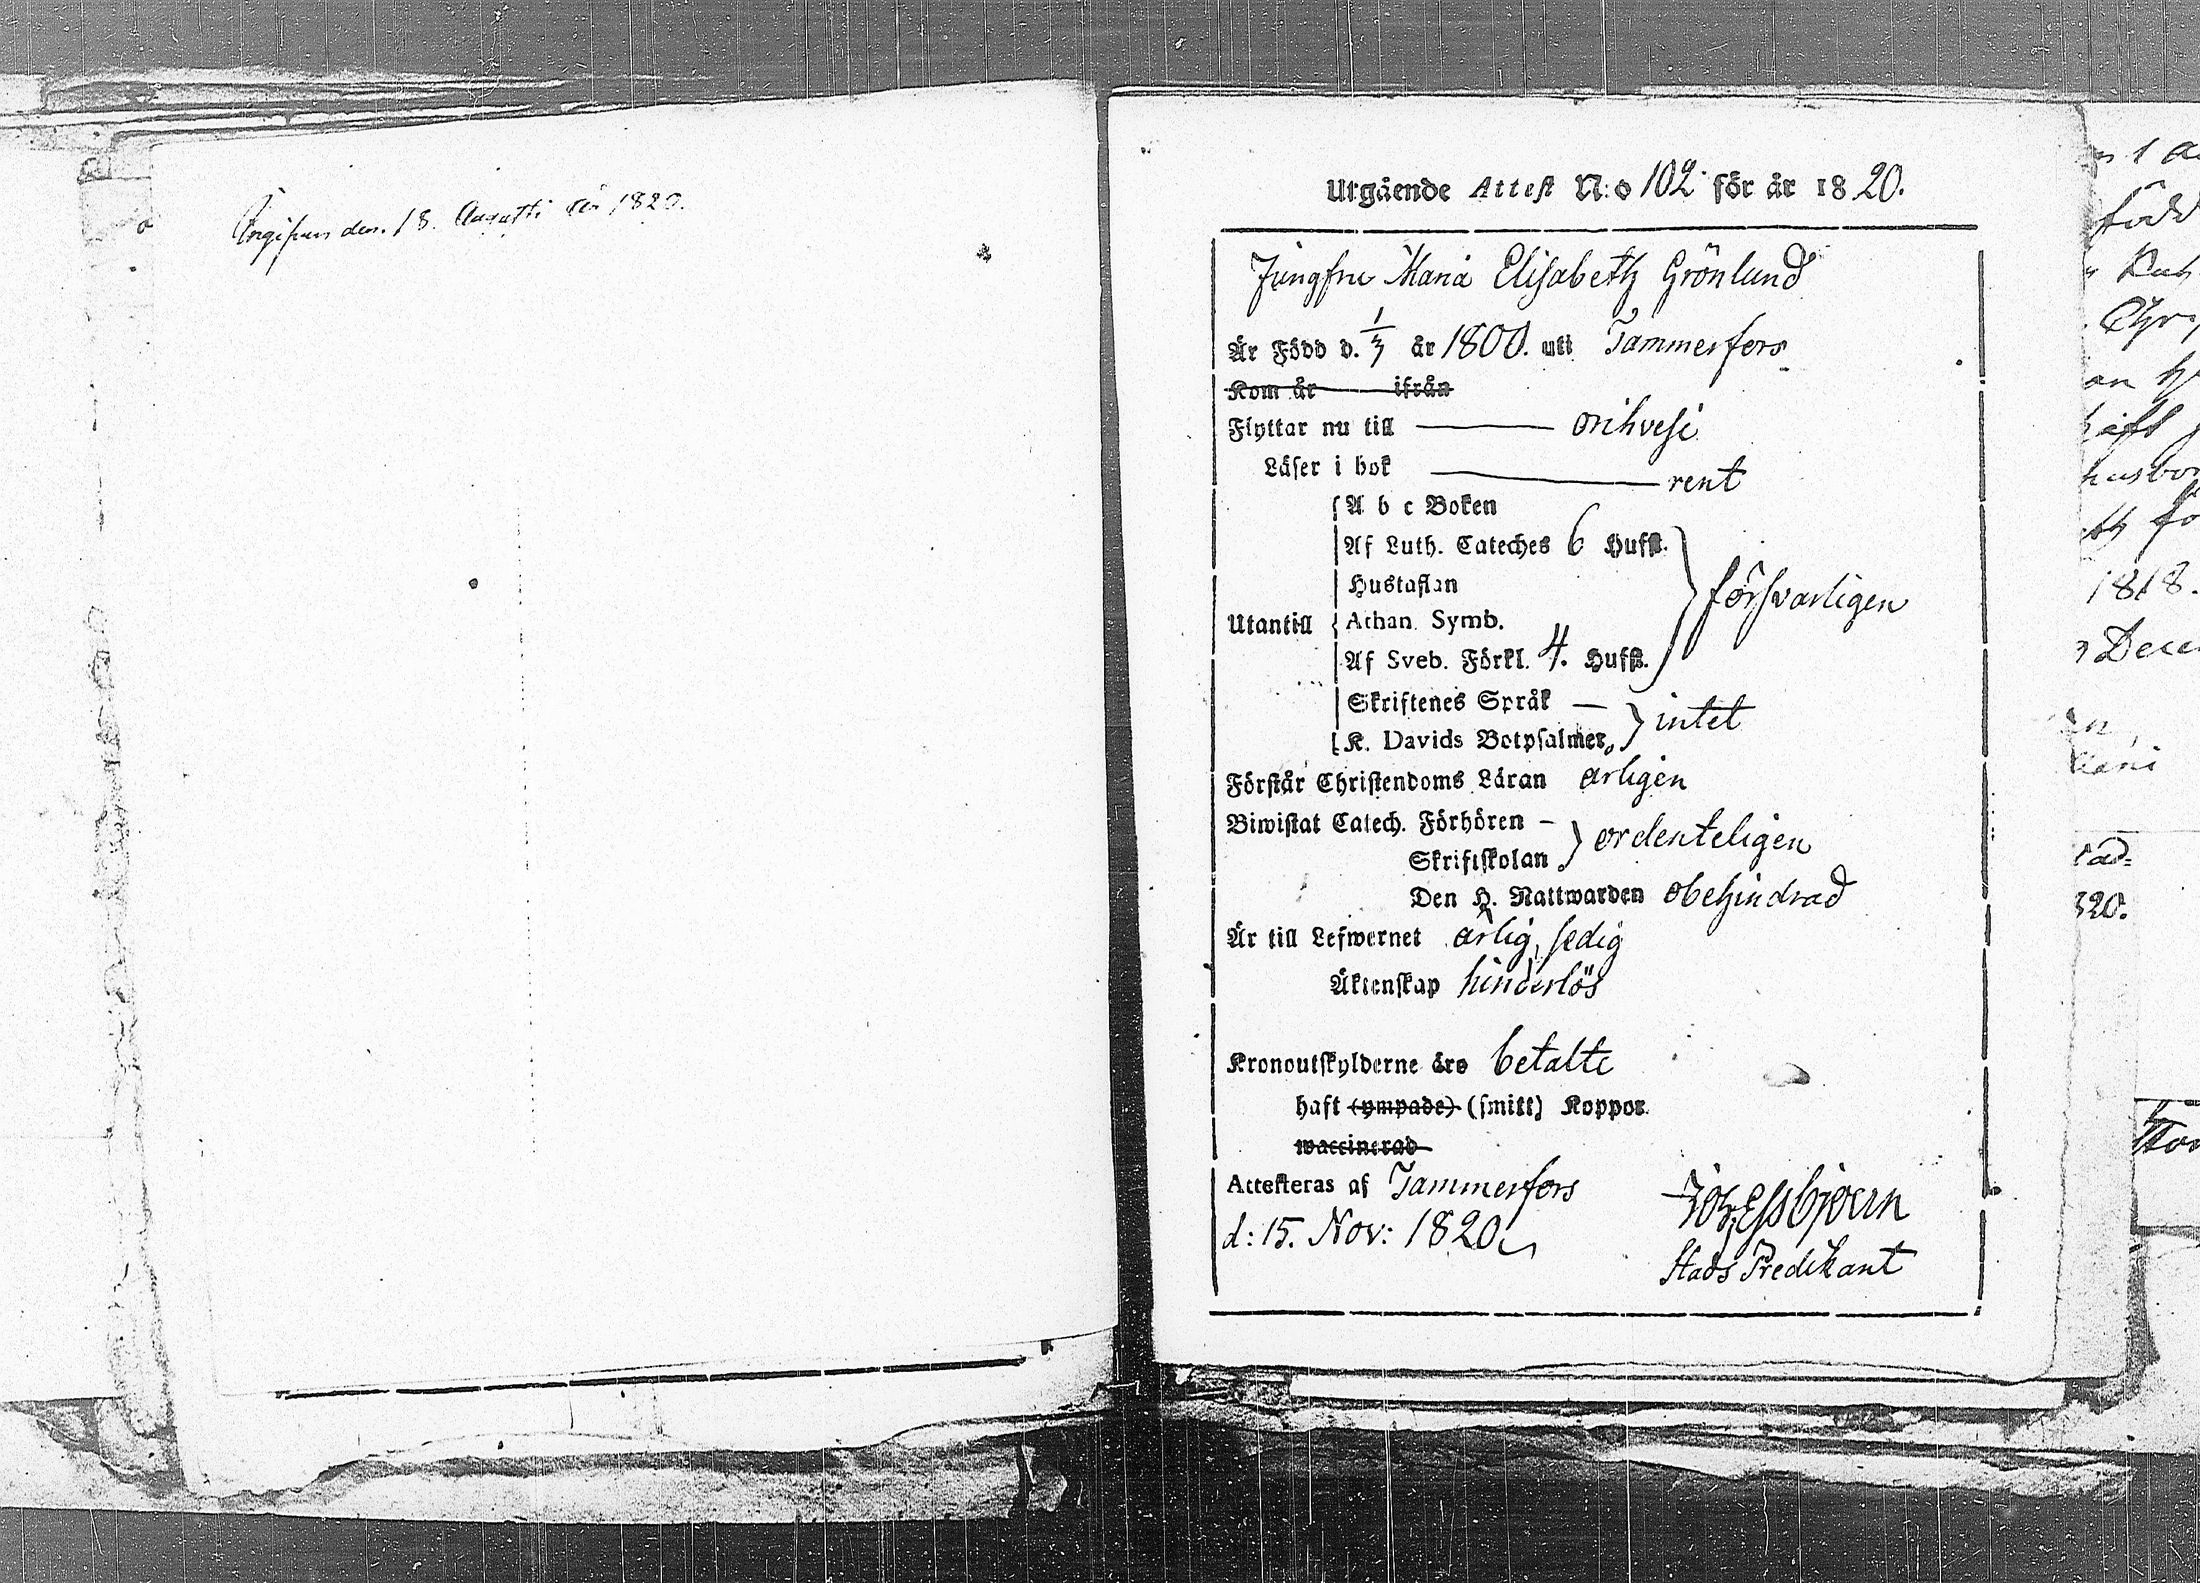 Angifven den. 18. Augusti år 1820.
Utgående Attest N:o 102 för år 1820.
Jungfru Maria Elisabeth Grönlund
Är Född d. 1/3 år 1800. uti Tammerfors
Kom år ifrån
Flyttar nu till orihvesi
Läser i bok rent
A b c Boken
Af Luth. Cateches 6 Hufst.
Hustaflan
försvarligen
Utantill Athan. Symb.
Af Sveb. Förkl. 4. Hufst.
Skriftenes Språk —
K. Davids Botpsalmer, intet
Förstår Christendoms Läran arligen
Biwistat Catech. Förhören —
Skriftskolan ordenteligen
Den H. Nattwarden obehindrad
Är till Lefwernet ärlig, sedig
Äktenskap hinderlös
Kronoutskylderne äro betalte
haft (ympade) (smitt) Koppor.
waccinerad
Attesteras af Tammerfors
d: 15. Nov: 1820
Stads Predikant
1818.
Dece
320.